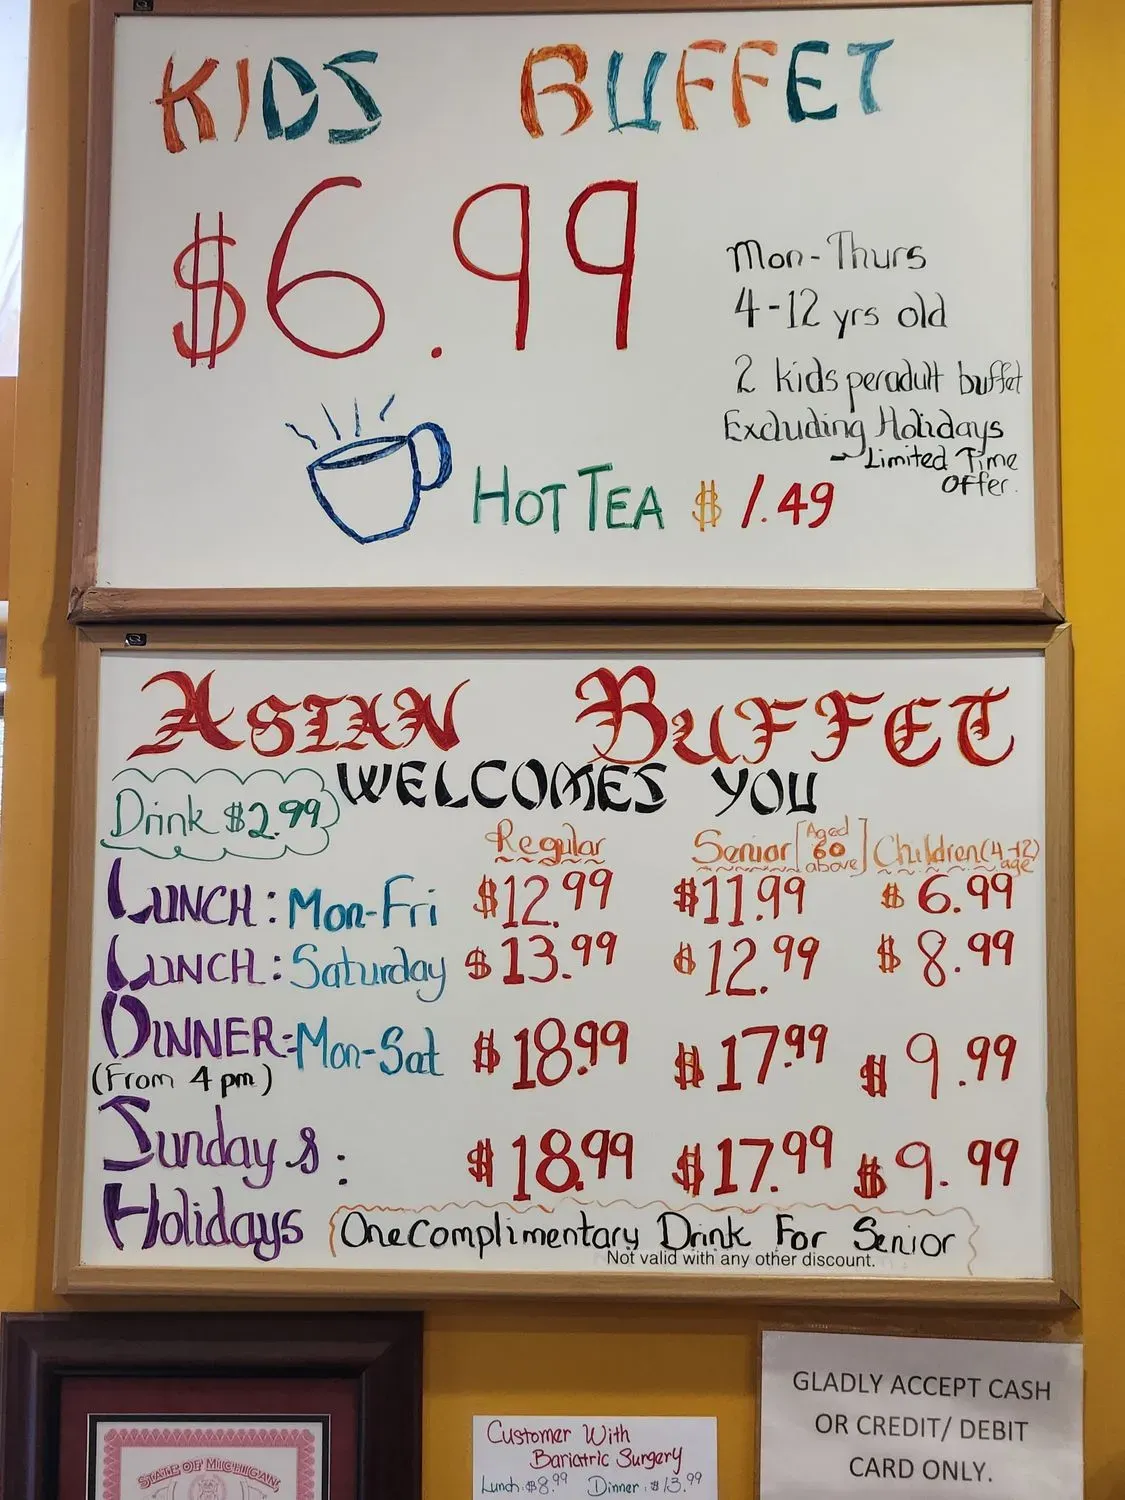 KIDS BUFFET
$6.99
Mon-Thurs
4-12 yrs old
2 kids per adult buffet
Excluding Holidays
- Limited Time
Offer.
HOT TEA $1.49
ASIAN BUFFET
WELCOMES YOU
Drink $2.99
Regular Senior [Aged 60 above] Children (4-12) age
LUNCH: Mon-Fri $12.99 $11.99 $6.99
LUNCH: Saturday $13.99 $12.99 $8.99
DINNER: Mon-Sat $18.99 $17.99 $9.99
(From 4 pm)
Sunday &: $18.99 $17.99 $9.99
Holidays
One complimentary Drink For Senior
Not valid with any other discount.
STATE OF MICHIGAN
Customer With
Bariatric Surgery
Lunch: $8.99 Dinner: $13.99
GLADLY ACCEPT CASH
OR CREDIT/ DEBIT
CARD ONLY.